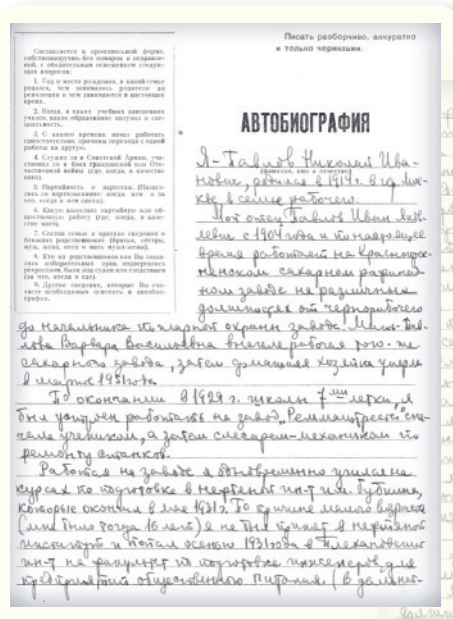 Писать разборчиво, аккуратно
и только чернилами.
Составляется в произвольной форме,
собственноручно, без помарок и исправле-
ний, с обязательным освещением следую-
щих вопросов:
1. Год и место рождения, в какой семье
родился, чем занимались родители до
революции и чем занимаются в настоящее
время.
2. Когда, в каких учебных заведениях
учился, какое образование получил и спе-
циальность.
3. С какого времени начал работать
самостоятельно, причины перехода с одной
работы на другую.
4. Служил ли в Советской Армии, уча-
ствовал ли в боях гражданской или Оте-
чественной войны (где, когда, в качестве
кого).
5. Партийность и партстаж.
6. Какую выполнял партийную или об-
щественную работу (где, когда, в каче-
стве кого).
7. Состав семьи и краткие сведения о
близких родственниках (братья, сёстры,
муж, жена, отец и мать мужа-жены).
8. Кто из родственников или Вы
лишались избирательных прав, подвергались
репрессиям, были под судом или следствием
(за что, когда и где).
9. Другие сведения, которые Вы счи-
таете необходимым осветить в автобио-
графии.
АВТОБИОГРАФИЯ
Я - Павлов Николай Ива-
(фамилия, имя и отчество)
нович, родился в 1914 г. в гор. Мос-
кве в семье рабочего.
Мой отец Павлов Иван Яков-
левич с 1904 года и по настоящее
время работает на Краснопрес-
ненском сахарном рафинад-
ном заводе на различных
должностях от чернорабочего
до начальника пожарной охраны завода. Мать - Пав-
лова Варвара Васильевна вначале рабочая того-же
сахарного завода, затем домашняя хозяйка умерла
в марте 1951 года.
По окончании в 1929 г. школы 7ми летки, я
был устроен работать на завод „Реммаштрест" сна-
чала учеником, а затем слесарем-механиком по
ремонту станков.
Работая на заводе я одновременно учился на
курсах по подготовке в нефтяной ин-т им. Губкина,
которые окончил в мае 1931 г. По причине малого возраста
(мне было тогда 16 лет) я не был принят в нефтяной
институт и попал осенью 1931 года в Плехановский
ин-т на факультет по подготовке инженеров для
предприятий общественного питания. (В дальней-